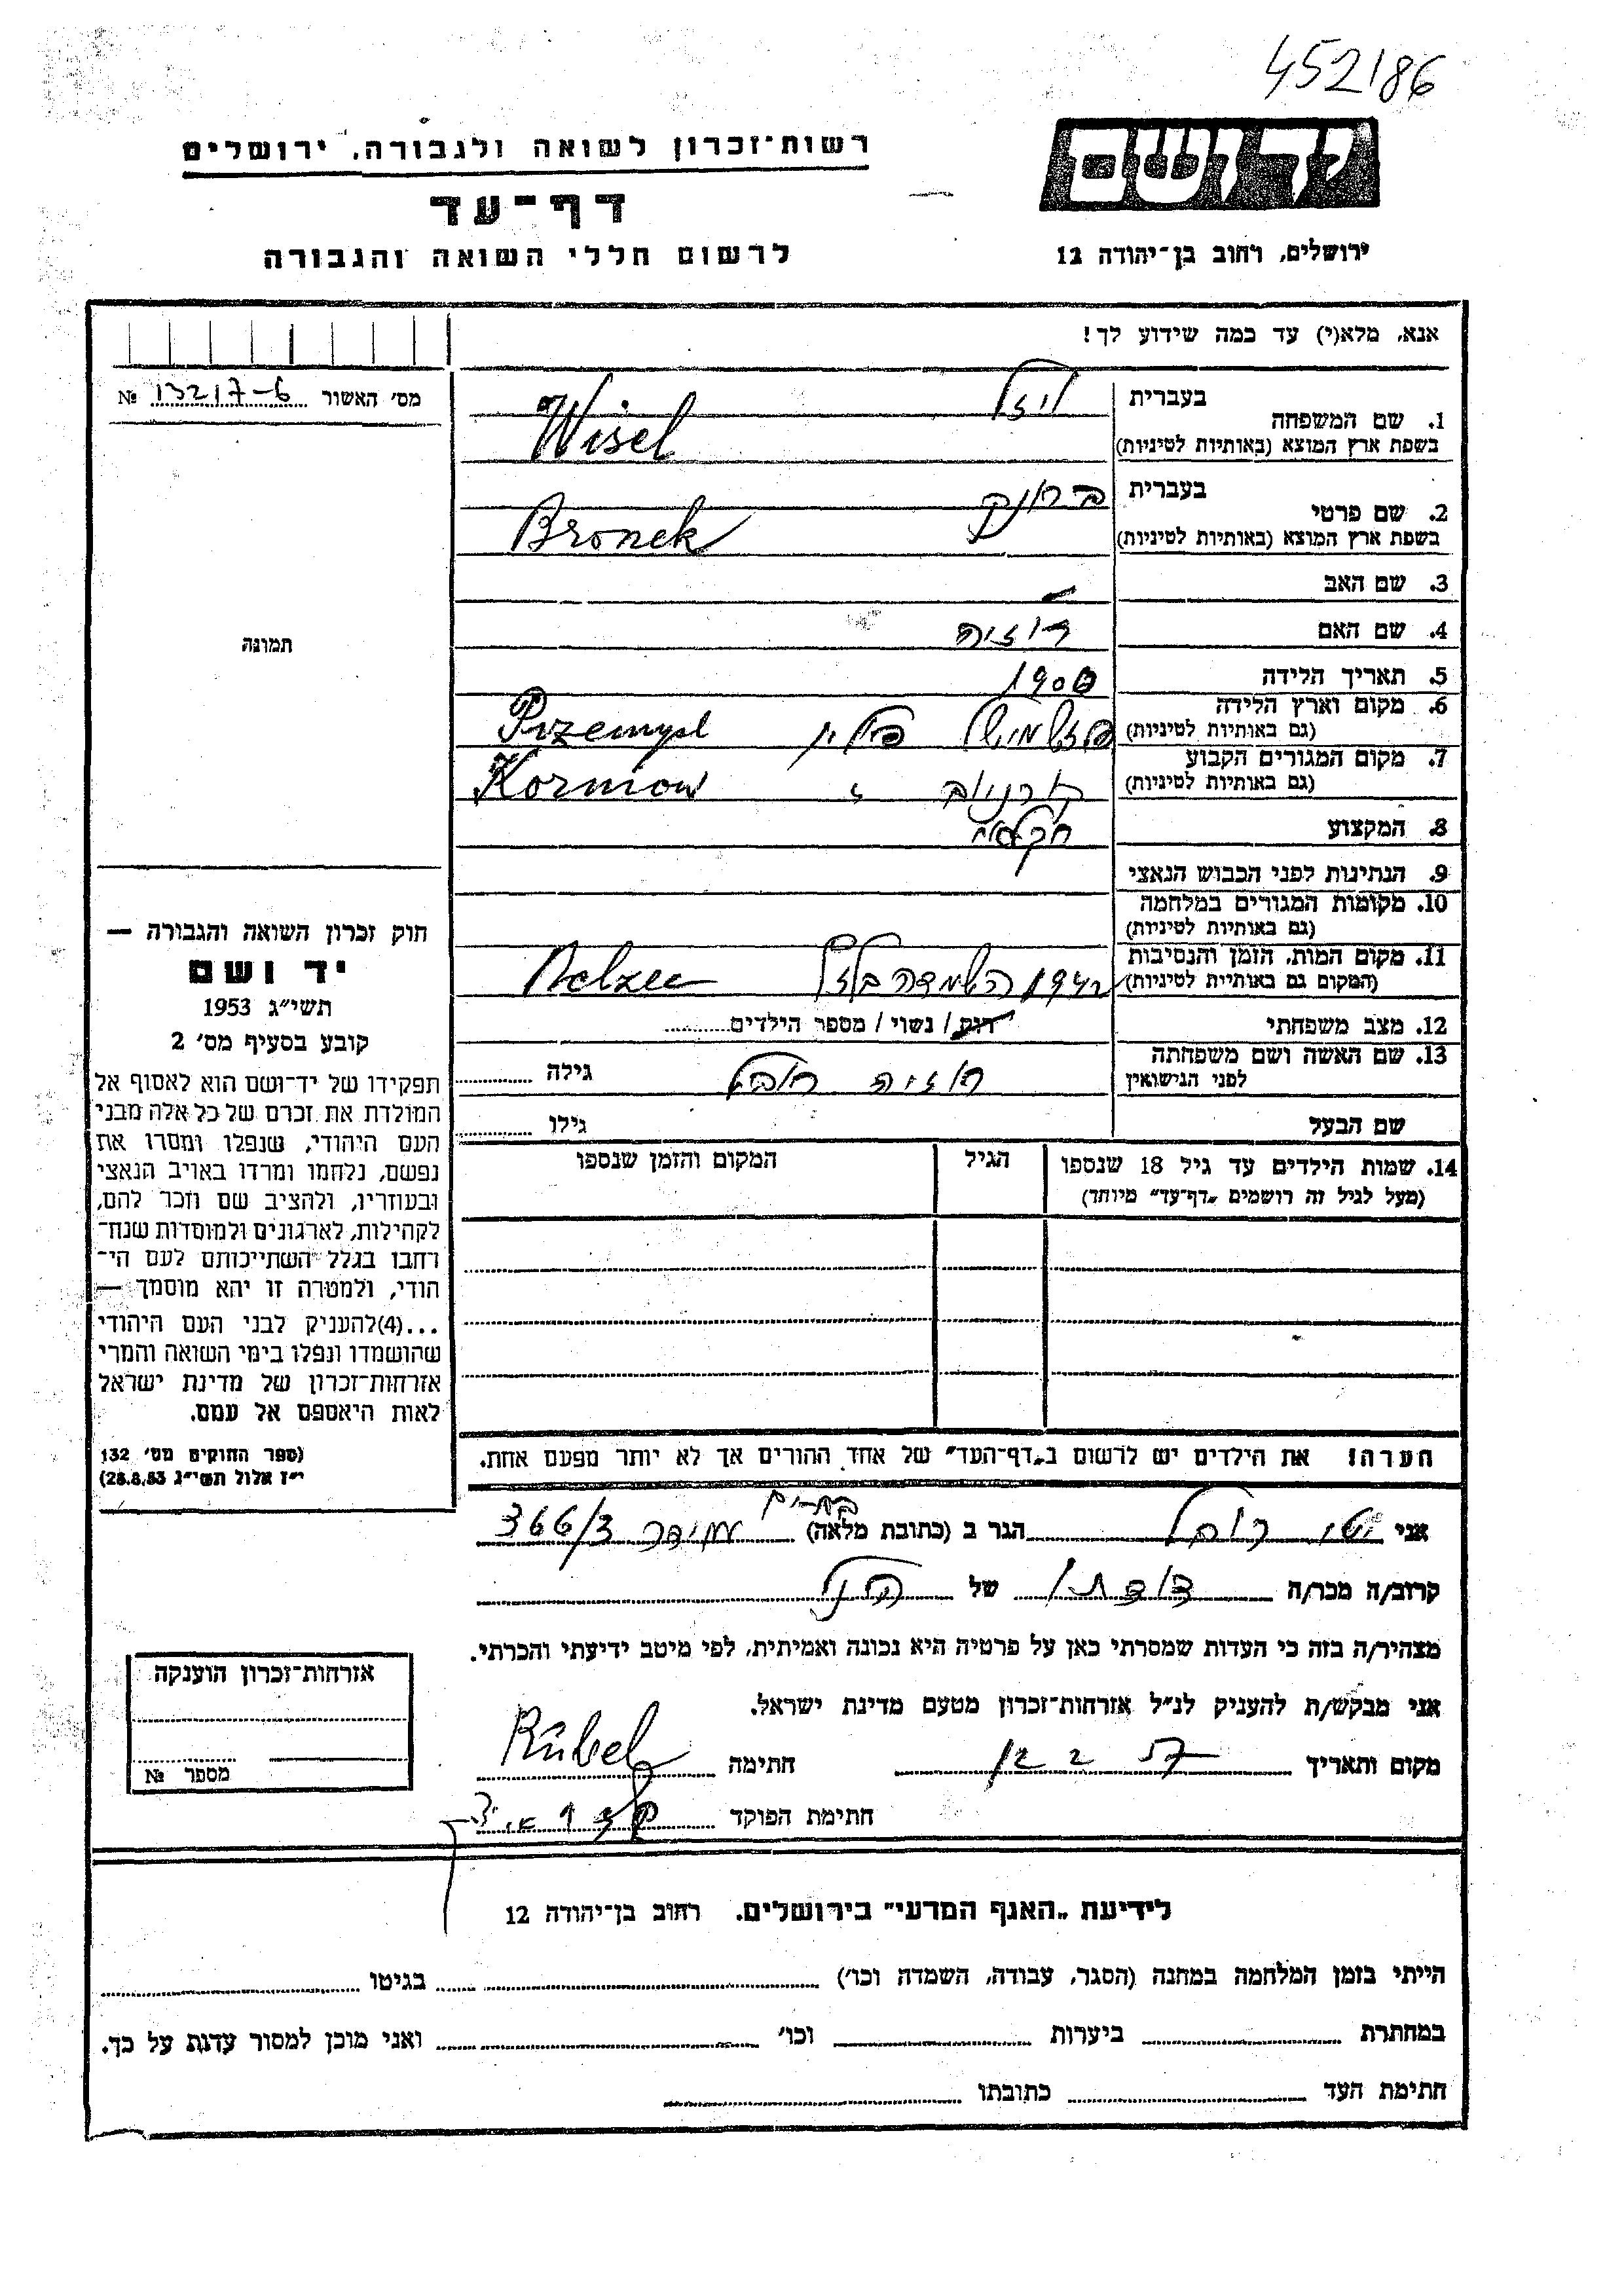 452186
רשות־זכרון לשואה ולגבורה, ירושלים
יד ושם
דף־עד
ירושלים, רחוב בן־יהודה 12
לרשום חללי השואה והגבורה
אנא, מלא(י) עד כמה שידוע לך!
מס׳ האשור № 13217-6
1. שם המשפחה בעברית ויזל
בשפת ארץ המוצא (באותיות לטיניות) Wisel
2. שם פרטי בעברית ברונק
בשפת ארץ המוצא (באותיות לטיניות) Bronek
3. שם האב -
4. שם האם רוזיה
5. תאריך הלידה 1900
6. מקום וארץ הלידה
(גם באותיות לטיניות) פולין Przemysl
7. מקום המגורים הקבוע
(גם באותיות לטיניות) קורניוב Korniow
8. המקצוע חקלאי
9. הנתינות לפני הכבוש הנאצי
10. מקומות המגורים במלחמה
(גם באותיות לטיניות)
11. מקום המות, הזמן והנסיבות
(המקום גם באותיות לטיניות) 1942 השמדה בלזץ Belzec
12. מצב משפחתי רוק / נשוי / מספר הילדים
13. שם האשה ושם משפחתה
לפני הנישואין רוזיה גילה
שם הבעל גילו
14. שמות הילדים עד גיל 18 שנספו הגיל המקום והזמן שנספו
(מעל לגיל זה רושמים „דף־עד״ מיוחד)
הערה! את הילדים יש לרשום ב„דף־העד״ של אחד ההורים אך לא יותר מפעם אחת.
תמונה
חוק זכרון השואה והגבורה —
יד ושם
תשי״ג 1953
קובע בסעיף מס׳ 2
תפקידו של יד־ושם הוא לאסוף אל
המולדת את זכרם של כל אלה מבני
העם היהודי, שנפלו ומסרו את
נפשם, נלחמו ומרדו באויב הנאצי
ובעוזריו, ולהציב שם וזכר להם,
לקהילות, לארגונים ולמוסדות שנח־
רחבו בגלל השתייכותם לעם הי־
הודי, ולמטרה זו יהא מוסמך —
...(4)להעניק לבני העם היהודי
שהושמדו ונפלו בימי השואה והמרי
אזרחות־זכרון של מדינת ישראל
לאות היאספם אל עמם.
(ספר החוקים מס׳ 132
י״ז אלול תשי״ג 28.8.53)
אני רובל הגר ב (כתובת מלאה) בת-ים עמידר 366/3
קרוב/ה מכר/ה דודתו של הנ״ל
מצהיר/ה בזה כי העדות שמסרתי כאן על פרטיה היא נכונה ואמיתית, לפי מיטב ידיעתי והכרתי.
אני מבקש/ת להעניק לנ״ל אזרחות־זכרון מטעם מדינת ישראל.
מקום ותאריך חתימה Rübel
חתימת הפוקד
אזרחות־זכרון הוענקה
מספר №
לידיעת „האגף המדעי״ בירושלים. רחוב בן־יהודה 12
הייתי בזמן המלחמה במחנה (הסגר, עבודה, השמדה וכו׳) בגיטו
במחתרת ביערות וכו׳ ואני מוכן למסור עדות על כך.
חתימת העד כתובתו